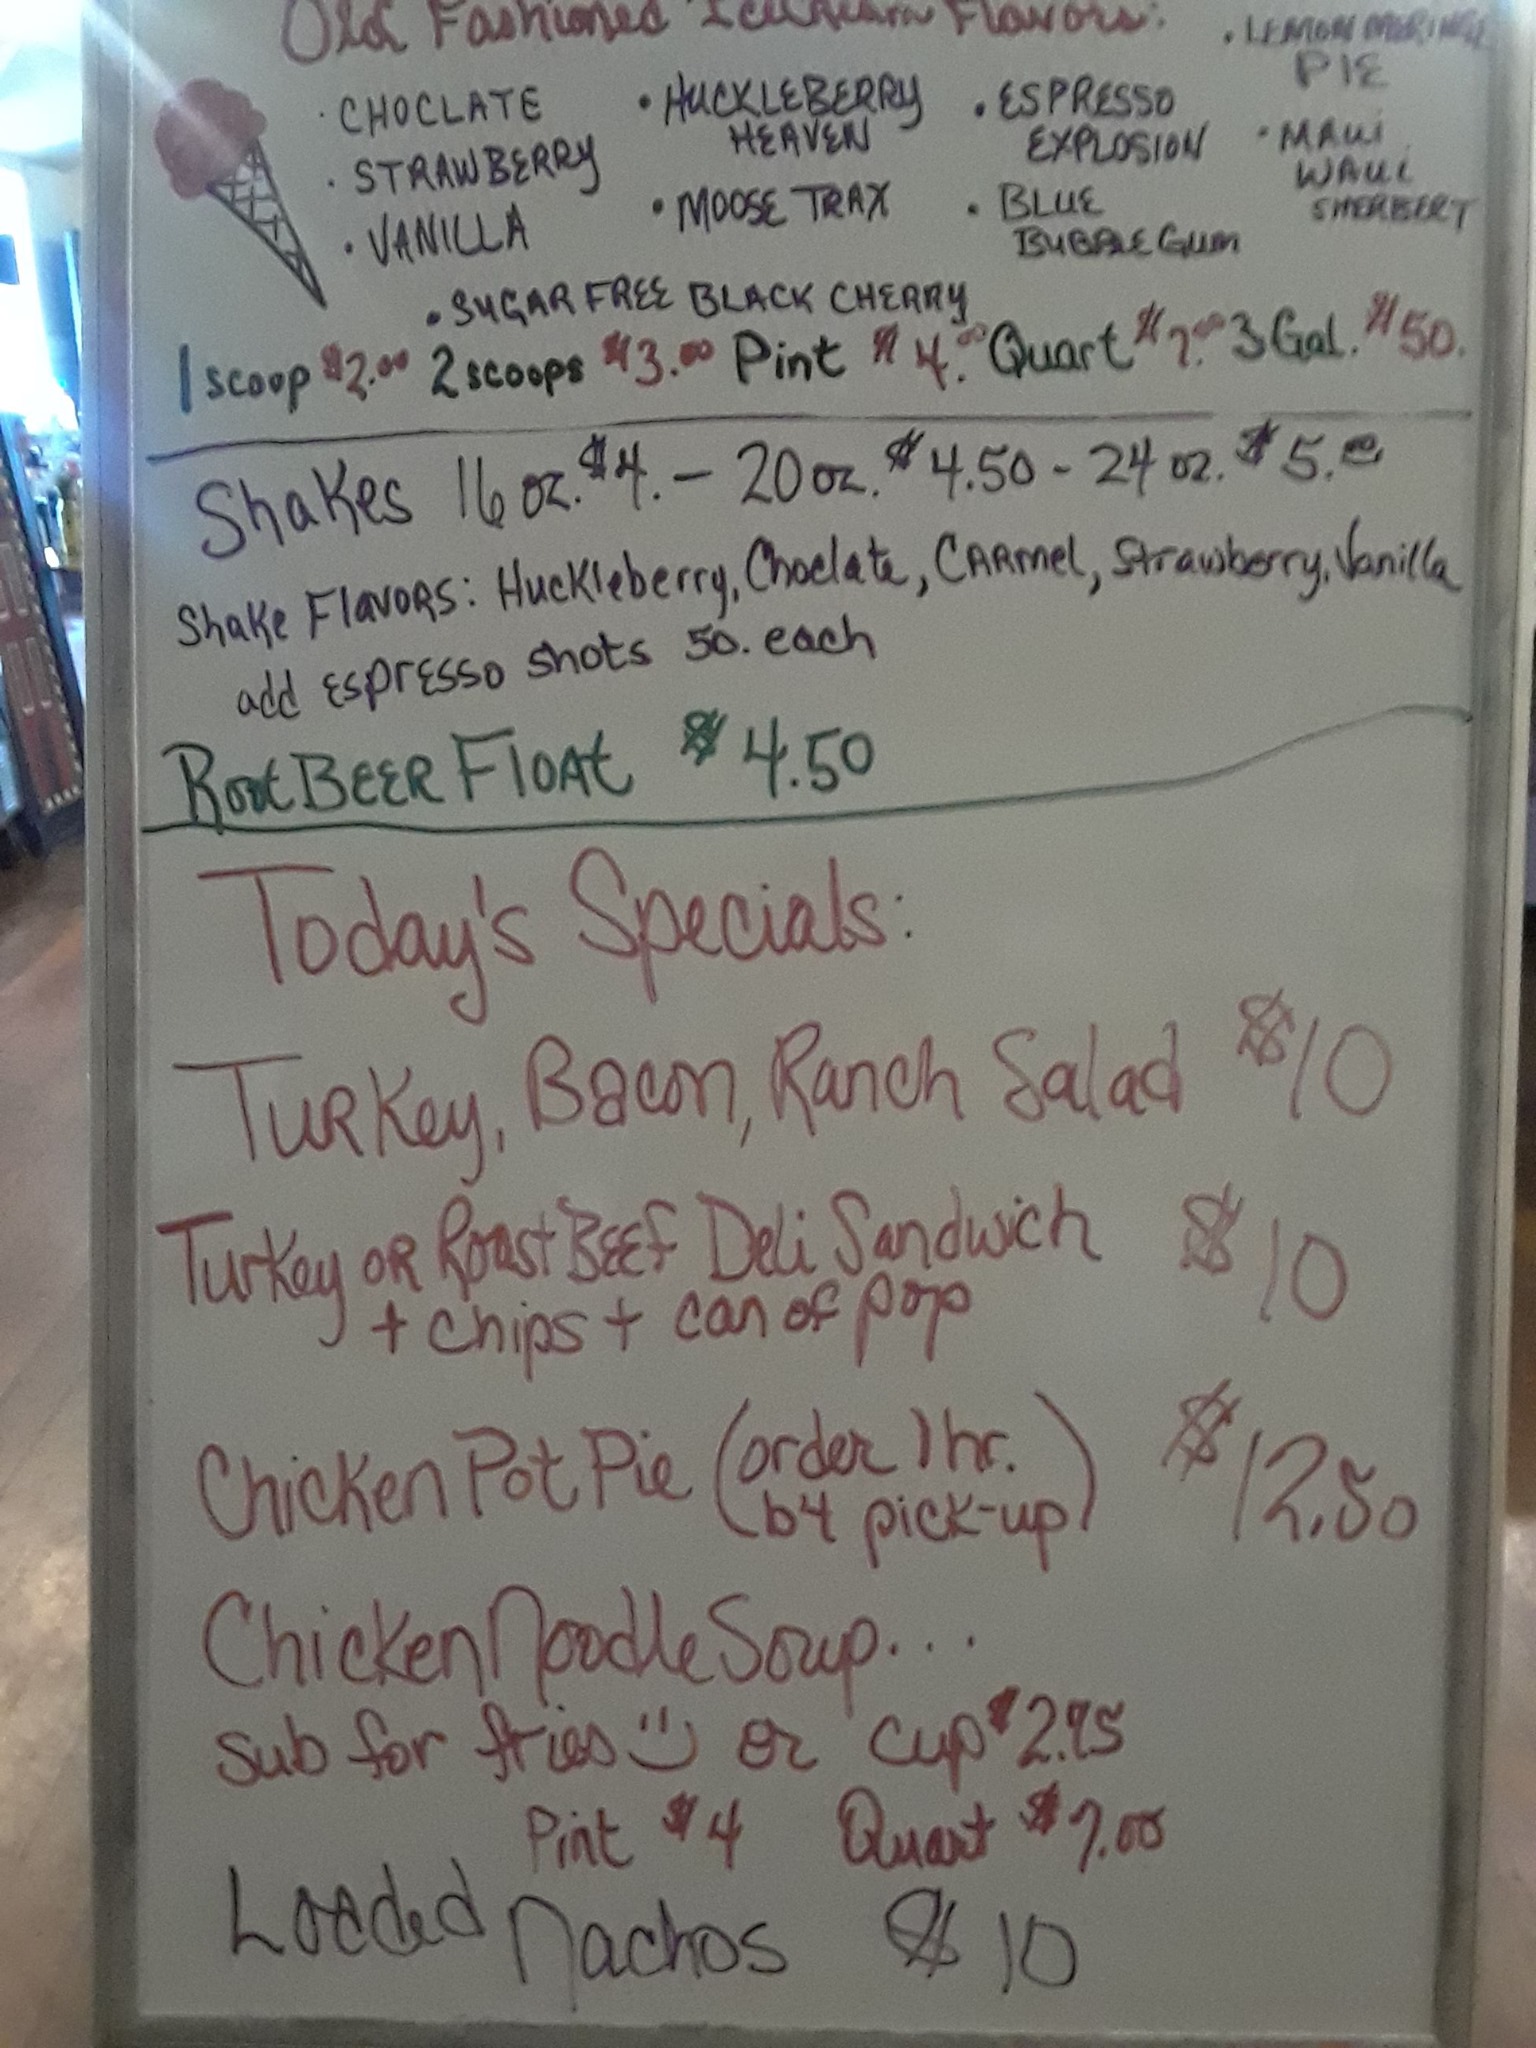 Old Fashioned IceCream Flavors:
• CHOCLATE
• STRAWBERRY
• VANILLA
• HUCKLEBERRY
HEAVEN
• MOOSE TRAX
• ESPRESSO
EXPLOSION
• BLUE
BUBBLE Gum
• LEMON MERINGE
PIE
• MAUI
WAUI
SHERBERT
• SUGAR FREE BLACK CHERRY
1 scoop $2.00 2 scoops $3.00 Pint $4.00 Quart $7.00 3 Gal. $50.
Shakes 16 oz. $4. - 20 oz. $4.50 - 24 oz. $5.00
Shake Flavors: Huckleberry, Choclate, Carmel, Strawberry, Vanilla
add espresso shots 50. each
Root BEER Float $4.50
Today's Specials:
Turkey, Bacon, Ranch Salad $10
Turkey or Roast Beef Deli Sandwich $10
+ chips + can of pop
Chicken Pot Pie (order 1 hr. b4 pick-up) $12.50
Chicken Noodle Soup...
sub for fries or cup $2.95
Pint $4 Quart $7.00
Loaded Nachos $10